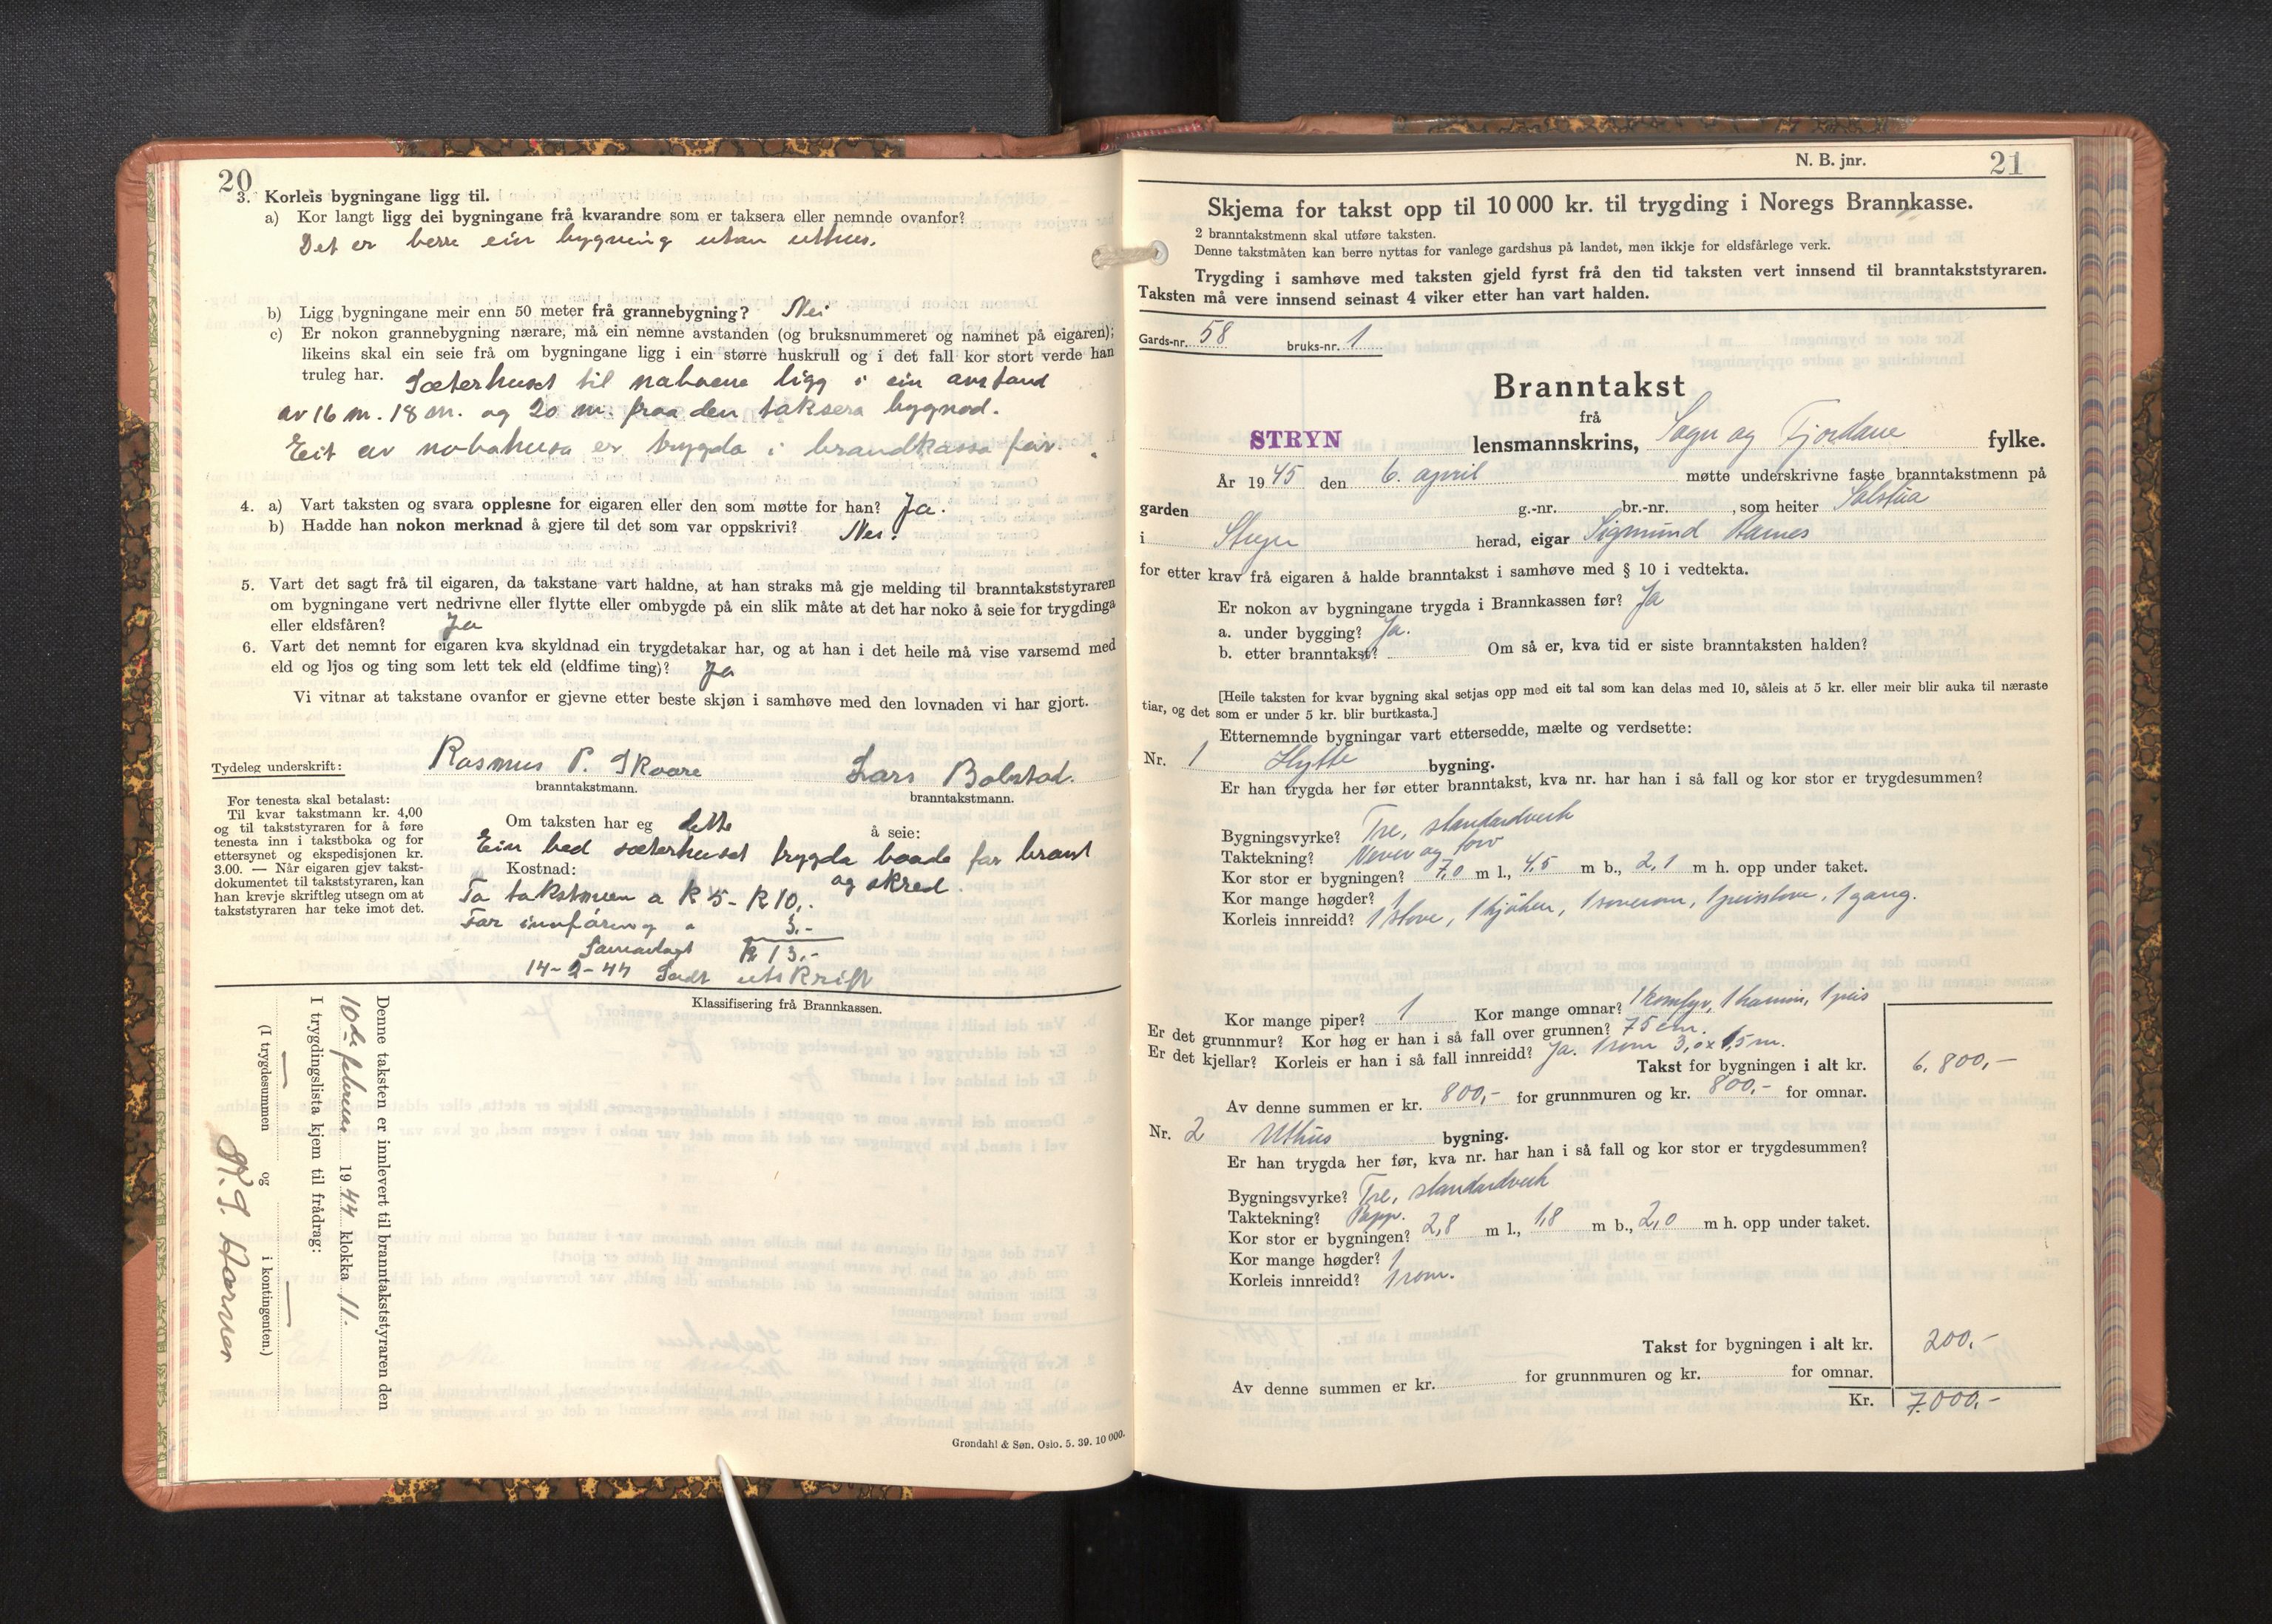 20
3. Korleis bygningane ligg til.
a) Kor langt ligg dei bygningane frå kvarandre som er taksera eller nemnde ovanfor?
Det er berre ein bygning utan uthus.
b) Ligg bygningane meir enn 50 meter frå grannebygning? Nei
c) Er nokon grannebygning nærare, må ein nemne avstanden (og bruksnummeret og namnet på eigaren);
likeins skal ein seie frå om bygningane ligg i ein større huskrull og i det fall kor stort verde han
truleg har. Sæterhuset til naboene ligg i ein avstand
av 16 m. 18 m. og 20 m. fraa den taksera bygnad.
Eit av nabohusa er trygda i brandkassa før.
4. a) Vart taksten og svara opplesne for eigaren eller den som møtte for han? Ja.
b) Hadde han nokon merknad å gjere til det som var oppskrivi? Nei.
5. Vart det sagt frå til eigaren, da takstane vart haldne, at han straks må gje melding til branntakststyraren
om bygningane vert nedrivne eller flytte eller ombygde på ein slik måte at det har noko å seie for trygdinga
eller eldsfåren? Ja
6. Vart det nemnt for eigaren kva skyldnad ein trygdetakar har, og at han i det heile må vise varsemd med
eld og ljos og ting som lett tek eld (eldfime ting)? Ja
Vi vitnar at takstane ovanfor er gjevne etter beste skjøn i samhøve med den lovnaden vi har gjort.
Tydeleg underskrift: Rasmus P. Skaare Lars Bolstad.
branntakstmann. branntakstmann.
For tenesta skal betalast:
Til kvar takstmann kr. 4,00
og til takststyraren for å føre
tenesta inn i takstboka og for
ettersynet og ekspedisjonen kr.
3.00. — Når eigaren gjev takst-
dokumentet til takststyraren, kan
han krevje skriftleg utsegn om at
takststyraren har teke imot det.
Om taksten har eg dette å seie:
Ein bed sæterhuset trygda baade for brant
og skred.
Kostnad:
To takstmen a K 5 - K 10,-
For innføring " 3,-
Samanlagt K 13,-
14-2-44 Sendt utskrift
Klassifisering frå Brannkassen.
Denne taksten er innlevert til branntakststyraren den
10de februar 1944 klokka 11.
I trygdingslista kjem til frådrag:
(I trygdesummen — og i kontingenten.) —
Grøndahl & Søn. Oslo. 5. 39. 10 000.
N. B. jnr. 21
Skjema for takst opp til 10 000 kr. til trygding i Noregs Brannkasse.
2 branntakstmenn skal utføre taksten.
Denne takstmåten kan berre nyttas for vanlege gardshus på landet, men ikkje for eldsfårlege verk.
Trygding i samhøve med taksten gjeld fyrst frå den tid taksten vert innsend til branntakststyraren.
Taksten må vere innsend seinast 4 viker etter han vart halden.
Gards-nr. 58 bruks-nr. 1
Branntakst
frå
STRYN lensmannskrins, Sogn og Fjordane fylke.
År 1945 den 6. april møtte underskrivne faste branntakstmenn på
garden g.-nr. br.-nr. , som heiter Solstua
i Stryn herad, eigar Sigmund Rames
for etter krav frå eigaren å halde branntakst i samhøve med § 10 i vedtekta.
Er nokon av bygningane trygda i Brannkassen før? Ja
a. under bygging? Ja.
b. etter branntakst? Om så er, kva tid er siste branntaksten halden?
[Heile taksten for kvar bygning skal setjas opp med eit tal som kan delas med 10, såleis at 5 kr. eller meir blir auka til næraste
tiar, og det som er under 5 kr. blir burtkasta.]
Etternemnde bygningar vart ettersedde, mælte og verdsette:
Nr. 1 Hytte bygning.
Er han trygda her før etter branntakst, kva nr. har han i så fall og kor stor er trygdesummen?
Bygningsvyrke? Tre, standardverk
Taktekning? Never og torv
Kor stor er bygningen? 7,0 m l., 4,5 m b., 2,1 m h. opp under taket.
Kor mange høgder? 1
Korleis innreidd? 1 stove, 1 kjøken, 1 soverom, 1 peisstove, 1 gang.
Kor mange piper? 1 Kor mange omnar? 1 komfyr, 1 kamin, 1 peis
Er det grunnmur? Kor høg er han i så fall over grunnen? 75 cm.
Er det kjellar? Korleis er han i så fall innreidd? Ja. 1 rom 3,0 x 1,5 m.
Takst for bygningen i alt kr. 6.800,—
Av denne summen er kr. 800,- for grunnmuren og kr. 800,- for omnar.
Nr. 2 Uthus bygning.
Er han trygda her før, kva nr. har han i så fall og kor stor er trygdesummen?
Bygningsvyrke? Tre, standardverk
Taktekning? Papp.
Kor stor er bygningen? 2,8 m l., 1,8 m b., 2,0 m h. opp under taket.
Kor mange høgder? 1
Korleis innreidd? 1 rom.
Takst for bygningen i alt kr. 200,-
Av denne summen er kr. for grunnmuren og kr. for omnar.
Kr. 7.000,-